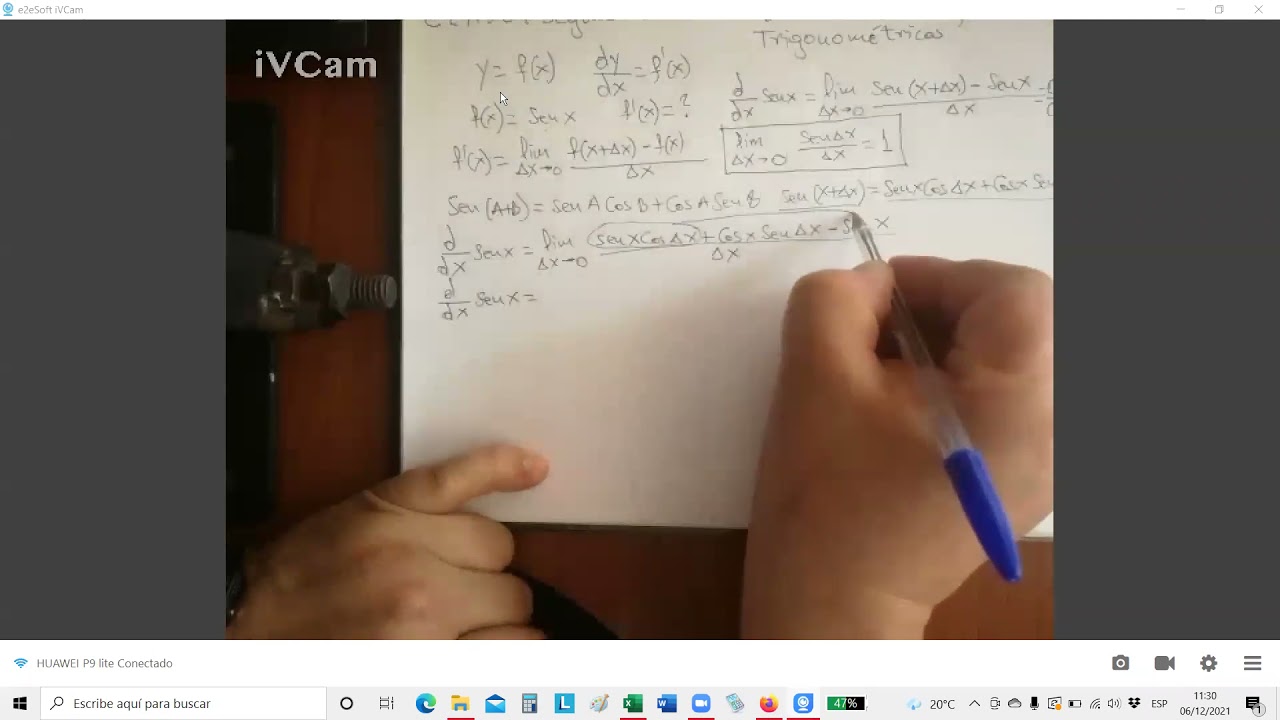 e2eSoft iVCam
iVCam
Trigonométricas
y = f(x) dy/dx = f'(x)
d/dx Sen x = lim Δx→0 Sen (x+Δx) - Sen x / Δx =
f(x) = Sen x f'(x) = ?
lim Δx→0 Sen Δx / Δx = 1
f'(x) = lim Δx→0 f(x+Δx) - f(x) / Δx
Sen (A+B) = Sen A Cos B + Cos A Sen B Sen (x+Δx) = Sen x Cos Δx + Cos x Sen
d/dx Sen x = lim Δx→0 Sen x Cos Δx + Cos x Sen Δx - S x / Δx
d/dx Sen x =
HUAWEI P9 lite Conectado
Escribe aquí para buscar
47%
20°C
ESP
11:30
06/12/2021
1